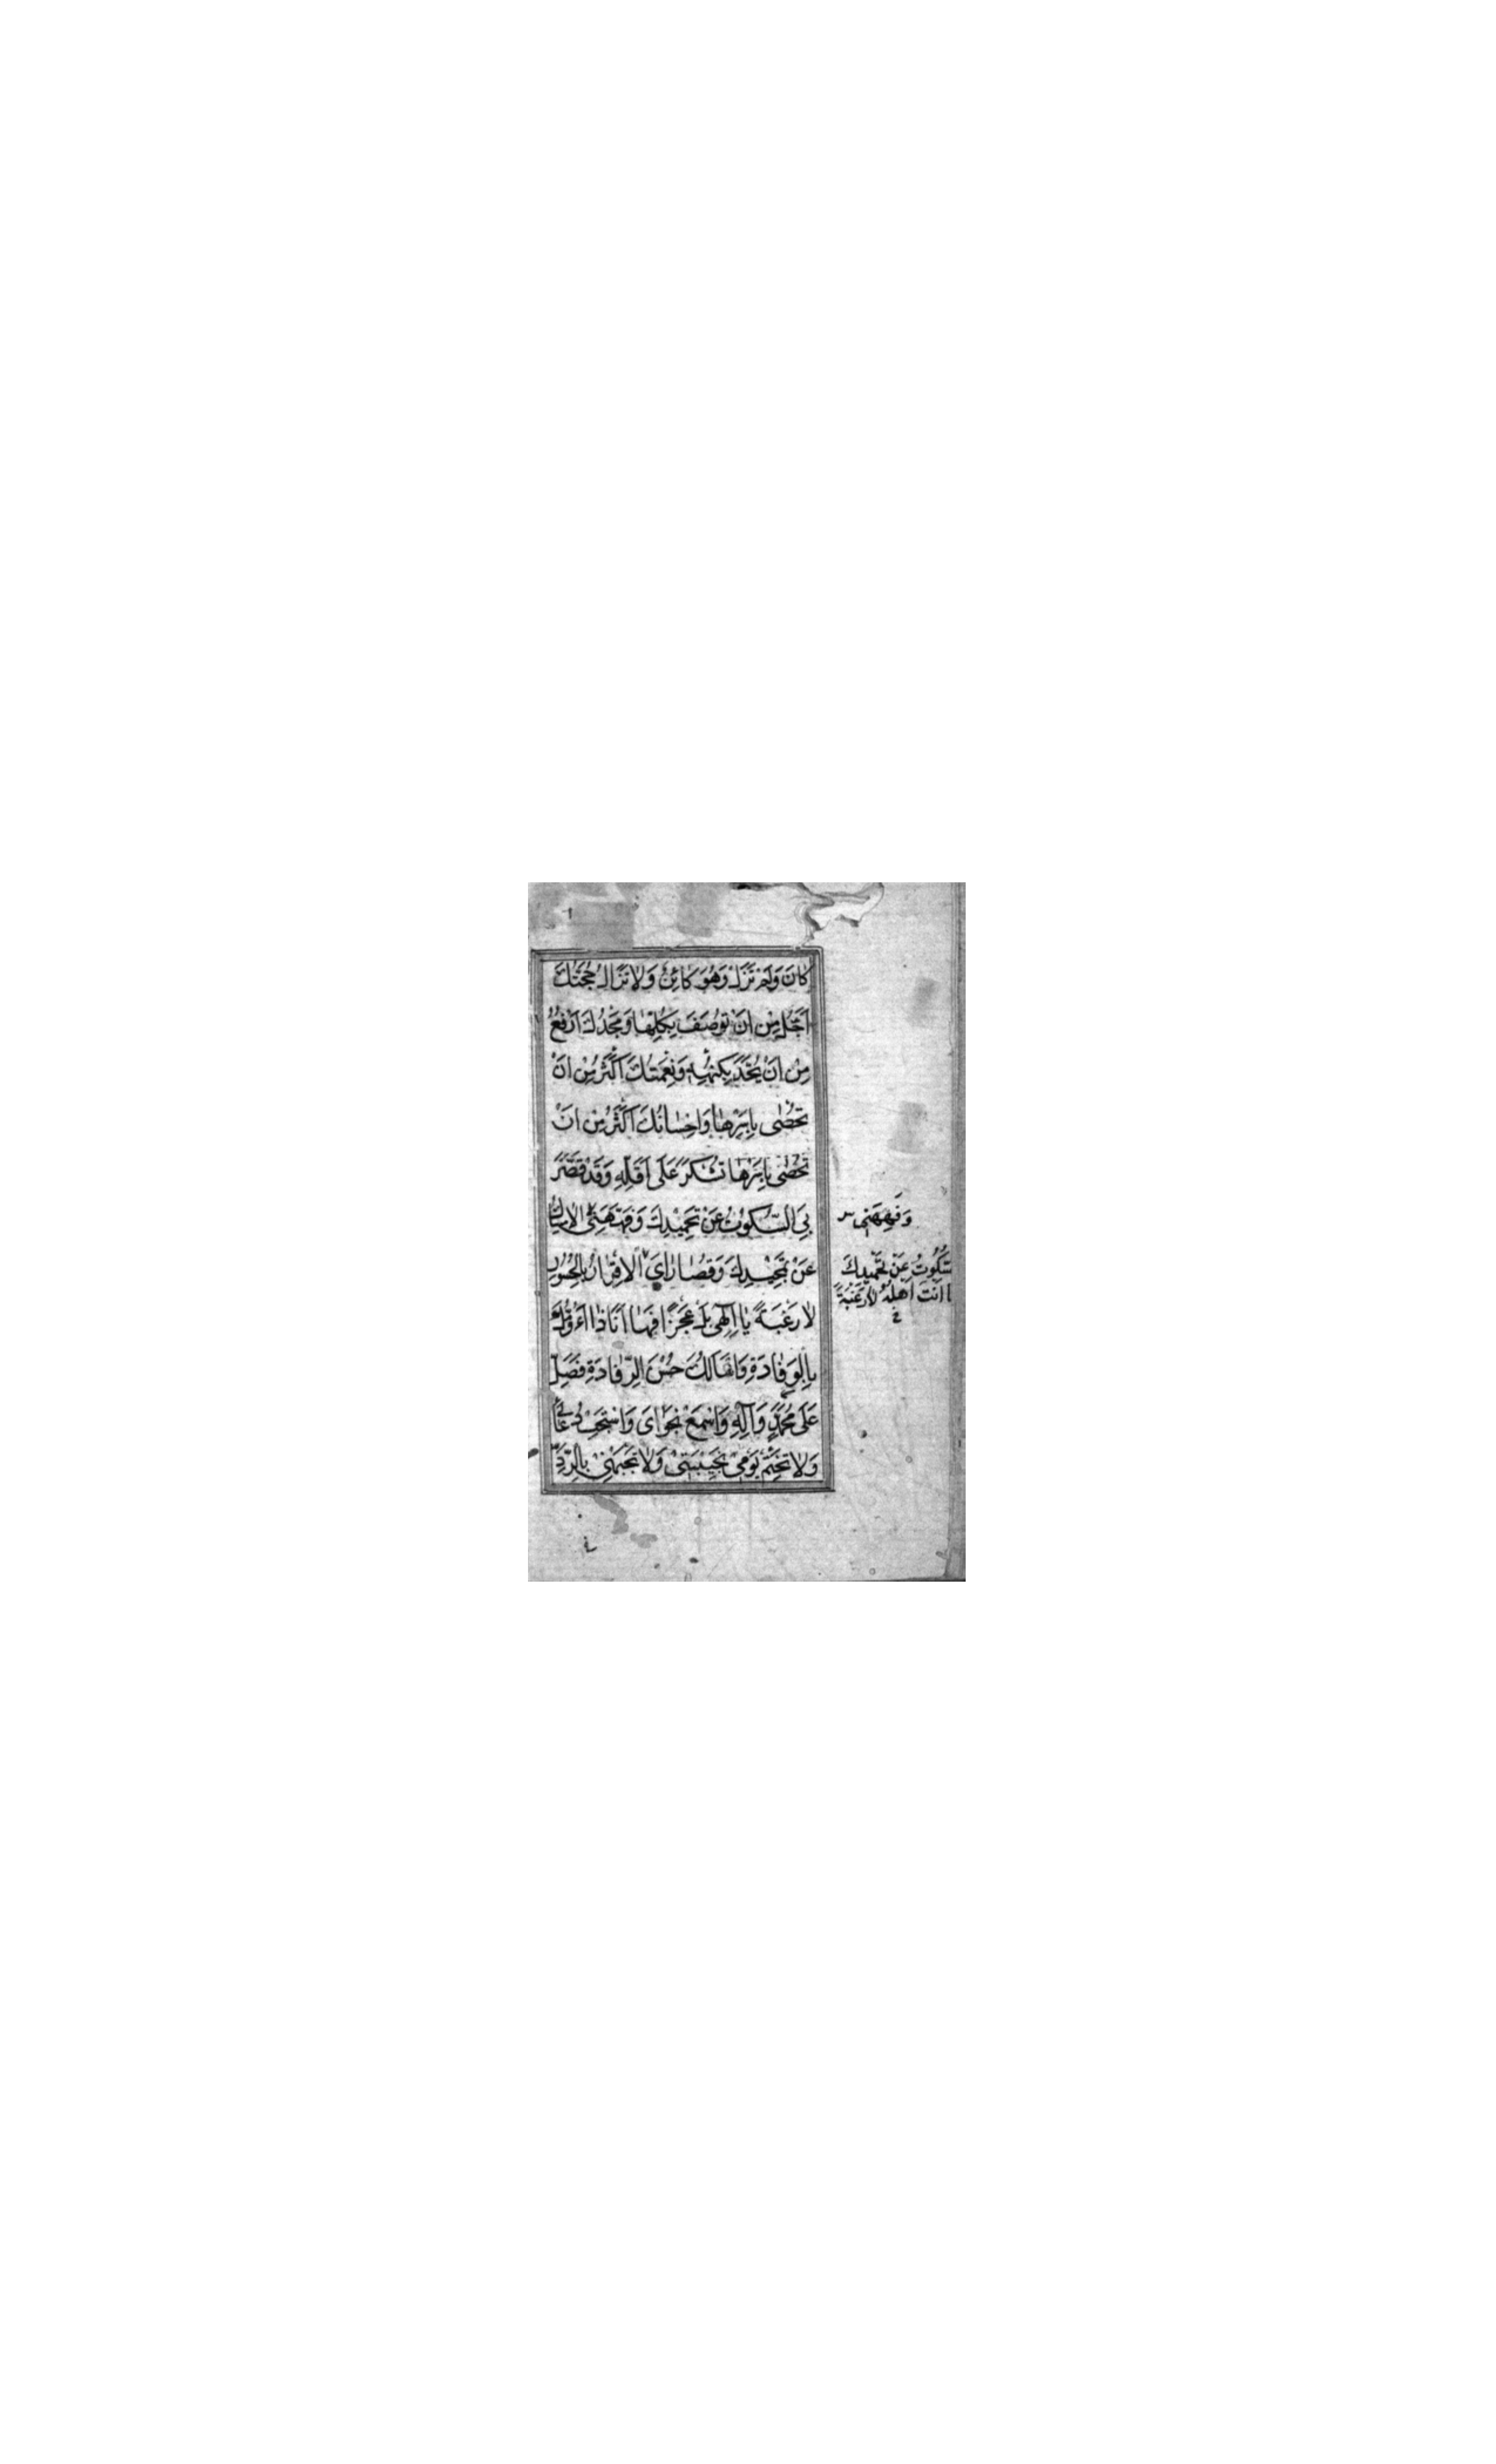 كَانَ وَلَمْ تَزَلْ وَهُوَ كَائِنٌ وَلَا تَزَالُ حُجَّتُكَ
اَجَلُّ مِنْ اَنْ تُوصَفَ بِكُلِّهَا وَمَجْدُكَ اَرْفَعُ
مِنْ اَنْ يُحَدَّ بِكُنْهِهِ وَنِعْمَتُكَ اَكْثَرُ مِنْ اَنْ
تُحْصٰى بِاَسْرِهَا وَاِحْسَانُكَ اَكْثَرُ مِنْ اَنْ
تُحْصٰى بِاَسْرِهَا تُشْكَرَ عَلٰى اَقَلِّهِ وَقَدْ قَصَّرَ
بِيَ السُّكُوتُ عَنْ تَحْمِيْدِكَ وَفَهَّهَنِىَ الْاِمْسَاكُ
عَنْ تَمْجِيْدِكَ وَقُصَارَاىَ الْاِقْرَارُ بِالْحُسُورِ
لَا رَغْبَةً يَا اِلٰهِى بَلْ عَجْزًا فَهَا اَنَا ذَا اَؤُمُّكَ
بِالْوِفَادَةِ وَاَسْأَلُكَ حُسْنَ الرِّفَادَةِ فَصَلِّ
عَلٰى مُحَمَّدٍ وَآلِهِ وَاسْمَعْ نَجْوَاىَ وَاسْتَجِبْ دُعَائِى
وَلَا تَخْتِمْ يَوْمِىْ بِخَيْبَتِىْ وَلَا تَجْبَهْنِىْ بِالرَّدِّ
وَفَهِهَنِى
سُّكُوتُ عَنْ تَحْمِيدِكَ
اَنْتَ اَهْلُهُ لَا رَغْبَةً